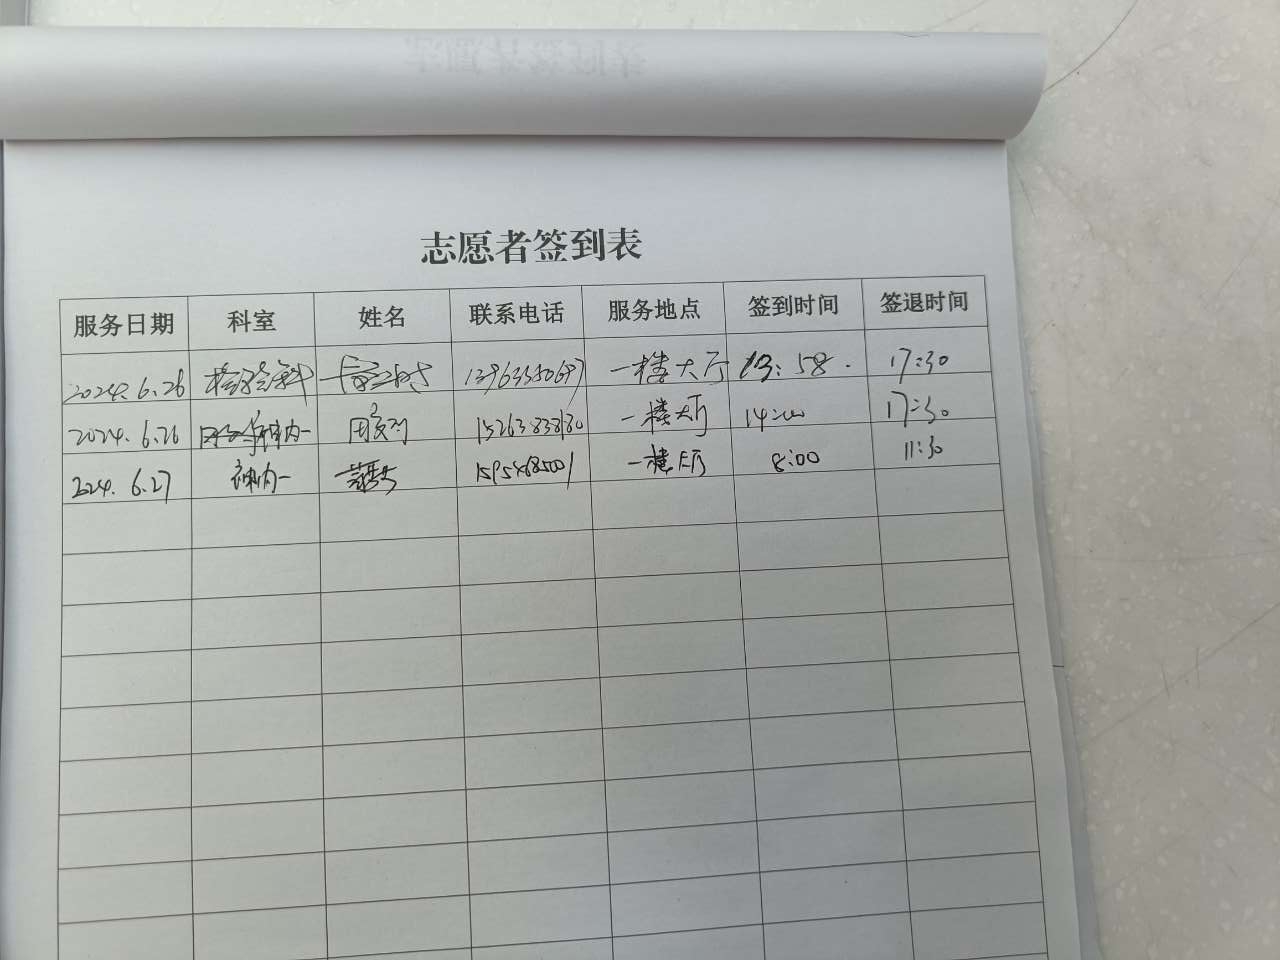 志愿者签到表
服务日期 科室 姓名 联系电话 服务地点 签到时间 签退时间
2024.6.26 检验科 一楼大厅 13:58. 17:30
2024.6.26 神内一 15263838180 一楼大厅 14:00 17:30
2024.6.27 神内一 15954685001 一楼大厅 8:00 11:30